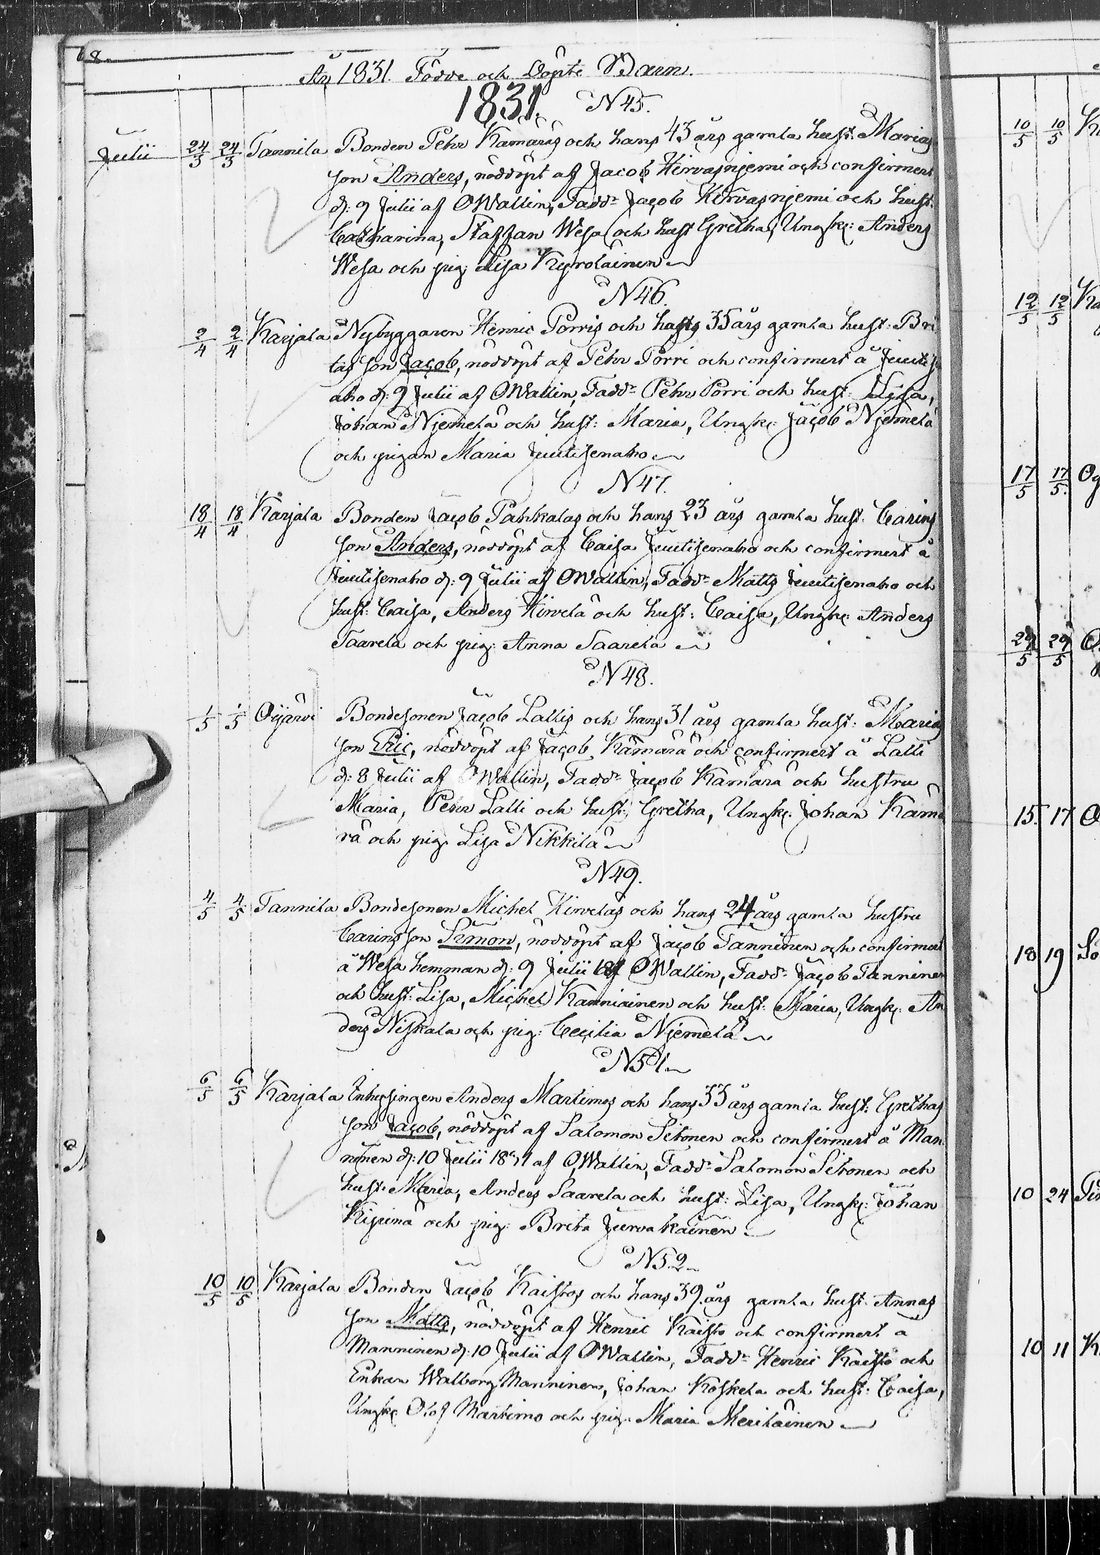 68.
Åŕ 1831. Födde och Döpte Barn.
1831. N 45.
Julii 24/3 24/3 Tannila Bonden Pehr Kämäräs och hans 43 års gamla hust: Marias
son Anders, nöddöpt af Jacob Hirvasnjemi och confirmert
d: 9 Julii af OWallin, Fadd: Jacob Hirvasnjemi och hust:
Catharina, Staffan Wesa och hust Gretha, Ungk: Anders
Wesa och pig: Lisa Kyrolainen
N 46.
2/4 2/4 Karjala Nybyggaren Henric Porris och hans 35 års gamla hust: Bri
tas son Jacob, nöddöpt af Pehr Porri och confirmert å Juutisen
aho d: 9 Julii af OWallin, Fadd: Pehr Porri och hust: Lisa,
Johan Njemelä och hust: Maria, Ungk: Jacob Njemelä
och pigan Maria Juutisenaho
N 47.
18/4 18/4 Karjala Bonden Jacob Pahkalas och hans 23 års gamla hust: Carins
son Anders, nöddöpt af Caisa Juutisenaho och confirmert å
Juutisenaho d: 9 Julii af OWallin, Fadd: Matts Juutisenaho och
hust: Caisa, Anders Hirvelä och hust: Caisa, Ungk: Anders
Saarela och pig: Anna Saarela
N 48.
1/5 1/5 Oijärvi Bondesonen Jacob Lallis och hans 31 års gamla hust: Marias
son Eric, nöddöpt af Jacob Kämärä och confirmert å Lalli
d: 8 Julii af OWallin, Fadd: Jacob Kämärä och hustru
Maria, Pehr Lalli och hust: Gretha, Ungk: Johan Kämä
rä och pig: Lisa Nikkilä
N 49.
4/5 4/5 Tannila Bondesonen Michel Hirveläs och hans 24 års gamla hustru
Carins son Simon, nöddöpt af Jacob Tanninen och confirmert
å Wesa hemman d: 9 Julii af OWallin, Fadd: Jacob Tanninen
och hust: Lisa, Michel Kanniainen och hust: Maria, Ungk: An
ders Niskala och pig: Cecilia Njemelä
N 51.
6/5 6/5 Karjala Inhysingen Anders Martimos och hans 33 års gamla hust: Grethas
son Jacob, nöddöpt af Salomon Sihonen och confirmert å Man
ninen d: 10 Julii 1831 af OWallin, Fadd: Salomon Sihonen och
hust: Maria, Anders Saarela och hust: Lisa, Ungk: Johan
och pig: Brita Jurvakainen
N 52.
10/5 10/5 Karjala Bonden Jacob Kaistos och hans 39 års gamla hust: Annas
son Matts, nöddöpt af Henric Kaisto och confirmert å
Manninen d: 10 Julii af OWallin, Fadd: Henric Kaisto och
Enkan Walborg Manninen, Johan Koskela och hust: Caisa,
Ungk: Olof Martimo och pig: Maria Meriläinen
10/5 10/5
12/5 12/5
17/5 17/5
29/5 29/5
15. 17
18 19
10 24
10 11